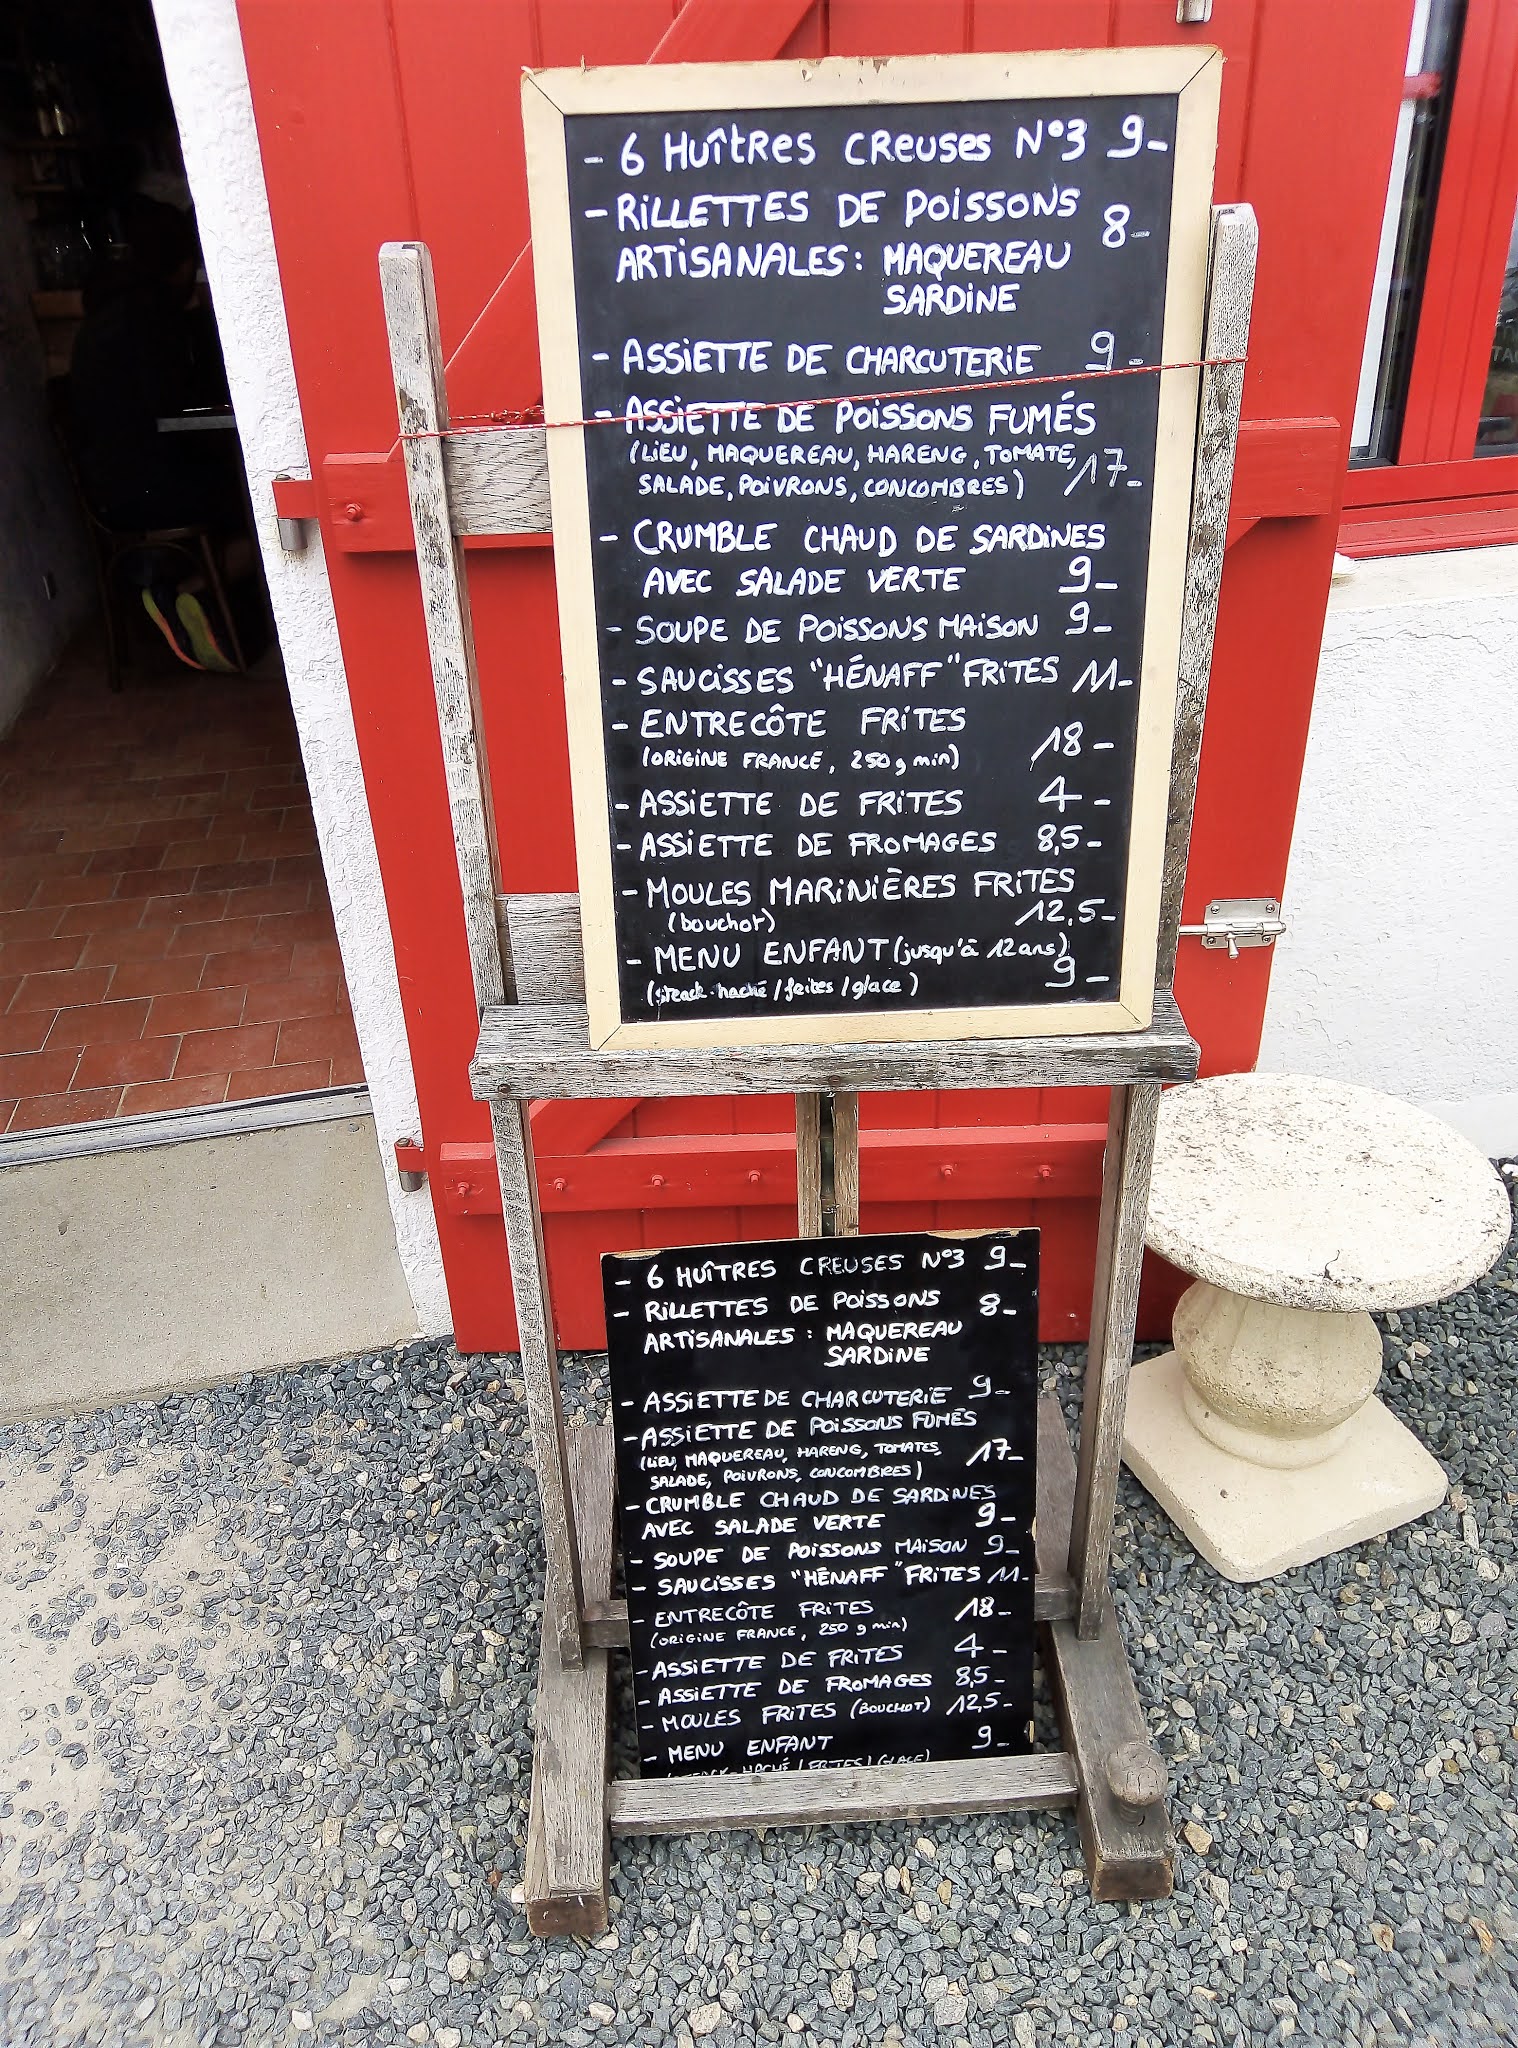 - 6 HUÎTRES CREUSES N°3 9-
- RILLETTES DE POISSONS
ARTISANALES : MAQUEREAU 8-
SARDINE
- ASSIETTE DE CHARCUTERIE 9-
- ASSIETTE DE POISSONS FUMÉS
(LIEU, MAQUEREAU, HARENG, TOMATE,
SALADE, POIVRONS, CONCOMBRES) 17-
- CRUMBLE CHAUD DE SARDINES
AVEC SALADE VERTE 9-
- SOUPE DE POISSONS MAISON 9-
- SAUCISSES "HÉNAFF" FRITES 11-
- ENTRECÔTE FRITES
(ORIGINE FRANCE, 250 g min) 18-
- ASSIETTE DE FRITES 4-
- ASSIETTE DE FROMAGES 8,5-
- MOULES MARINIÈRES FRITES
(bouchot) 12,5-
- MENU ENFANT (jusqu'à 12 ans)
(steack-haché / frites / glace) 9-
- 6 HUÎTRES CREUSES N°3 9-
- RILLETTES DE POISSONS 8-
ARTISANALES : MAQUEREAU
SARDINE
- ASSIETTE DE CHARCUTERIE 9-
- ASSIETTE DE POISSONS FUMÉS
(LIEU, MAQUEREAU, HARENG, TOMATES, 17-
SALADE, POIVRONS, CONCOMBRES)
- CRUMBLE CHAUD DE SARDINES
AVEC SALADE VERTE 9-
- SOUPE DE POISSONS MAISON 9-
- SAUCISSES "HÉNAFF" FRITES 11-
- ENTRECÔTE FRITES 18-
(ORIGINE FRANCE, 250 g min)
- ASSIETTE DE FRITES 4-
- ASSIETTE DE FROMAGES 8,5-
- MOULES FRITES (BOUCHOT) 12,5-
- MENU ENFANT 9-
HACHÉ / FRITES / GLACE)